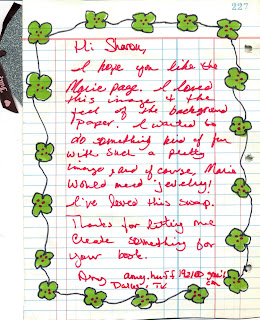 227
Hi Sharon,
I hope you like the
Marie page. I loved
this image & the
feel of the background
paper. I wanted to
do something kind of fun
with such a pretty
image, and of course, Marie
would need jewelry!
I've loved this swap.
Thanks for letting me
create something for
your book.
Amy
Dallas, TX